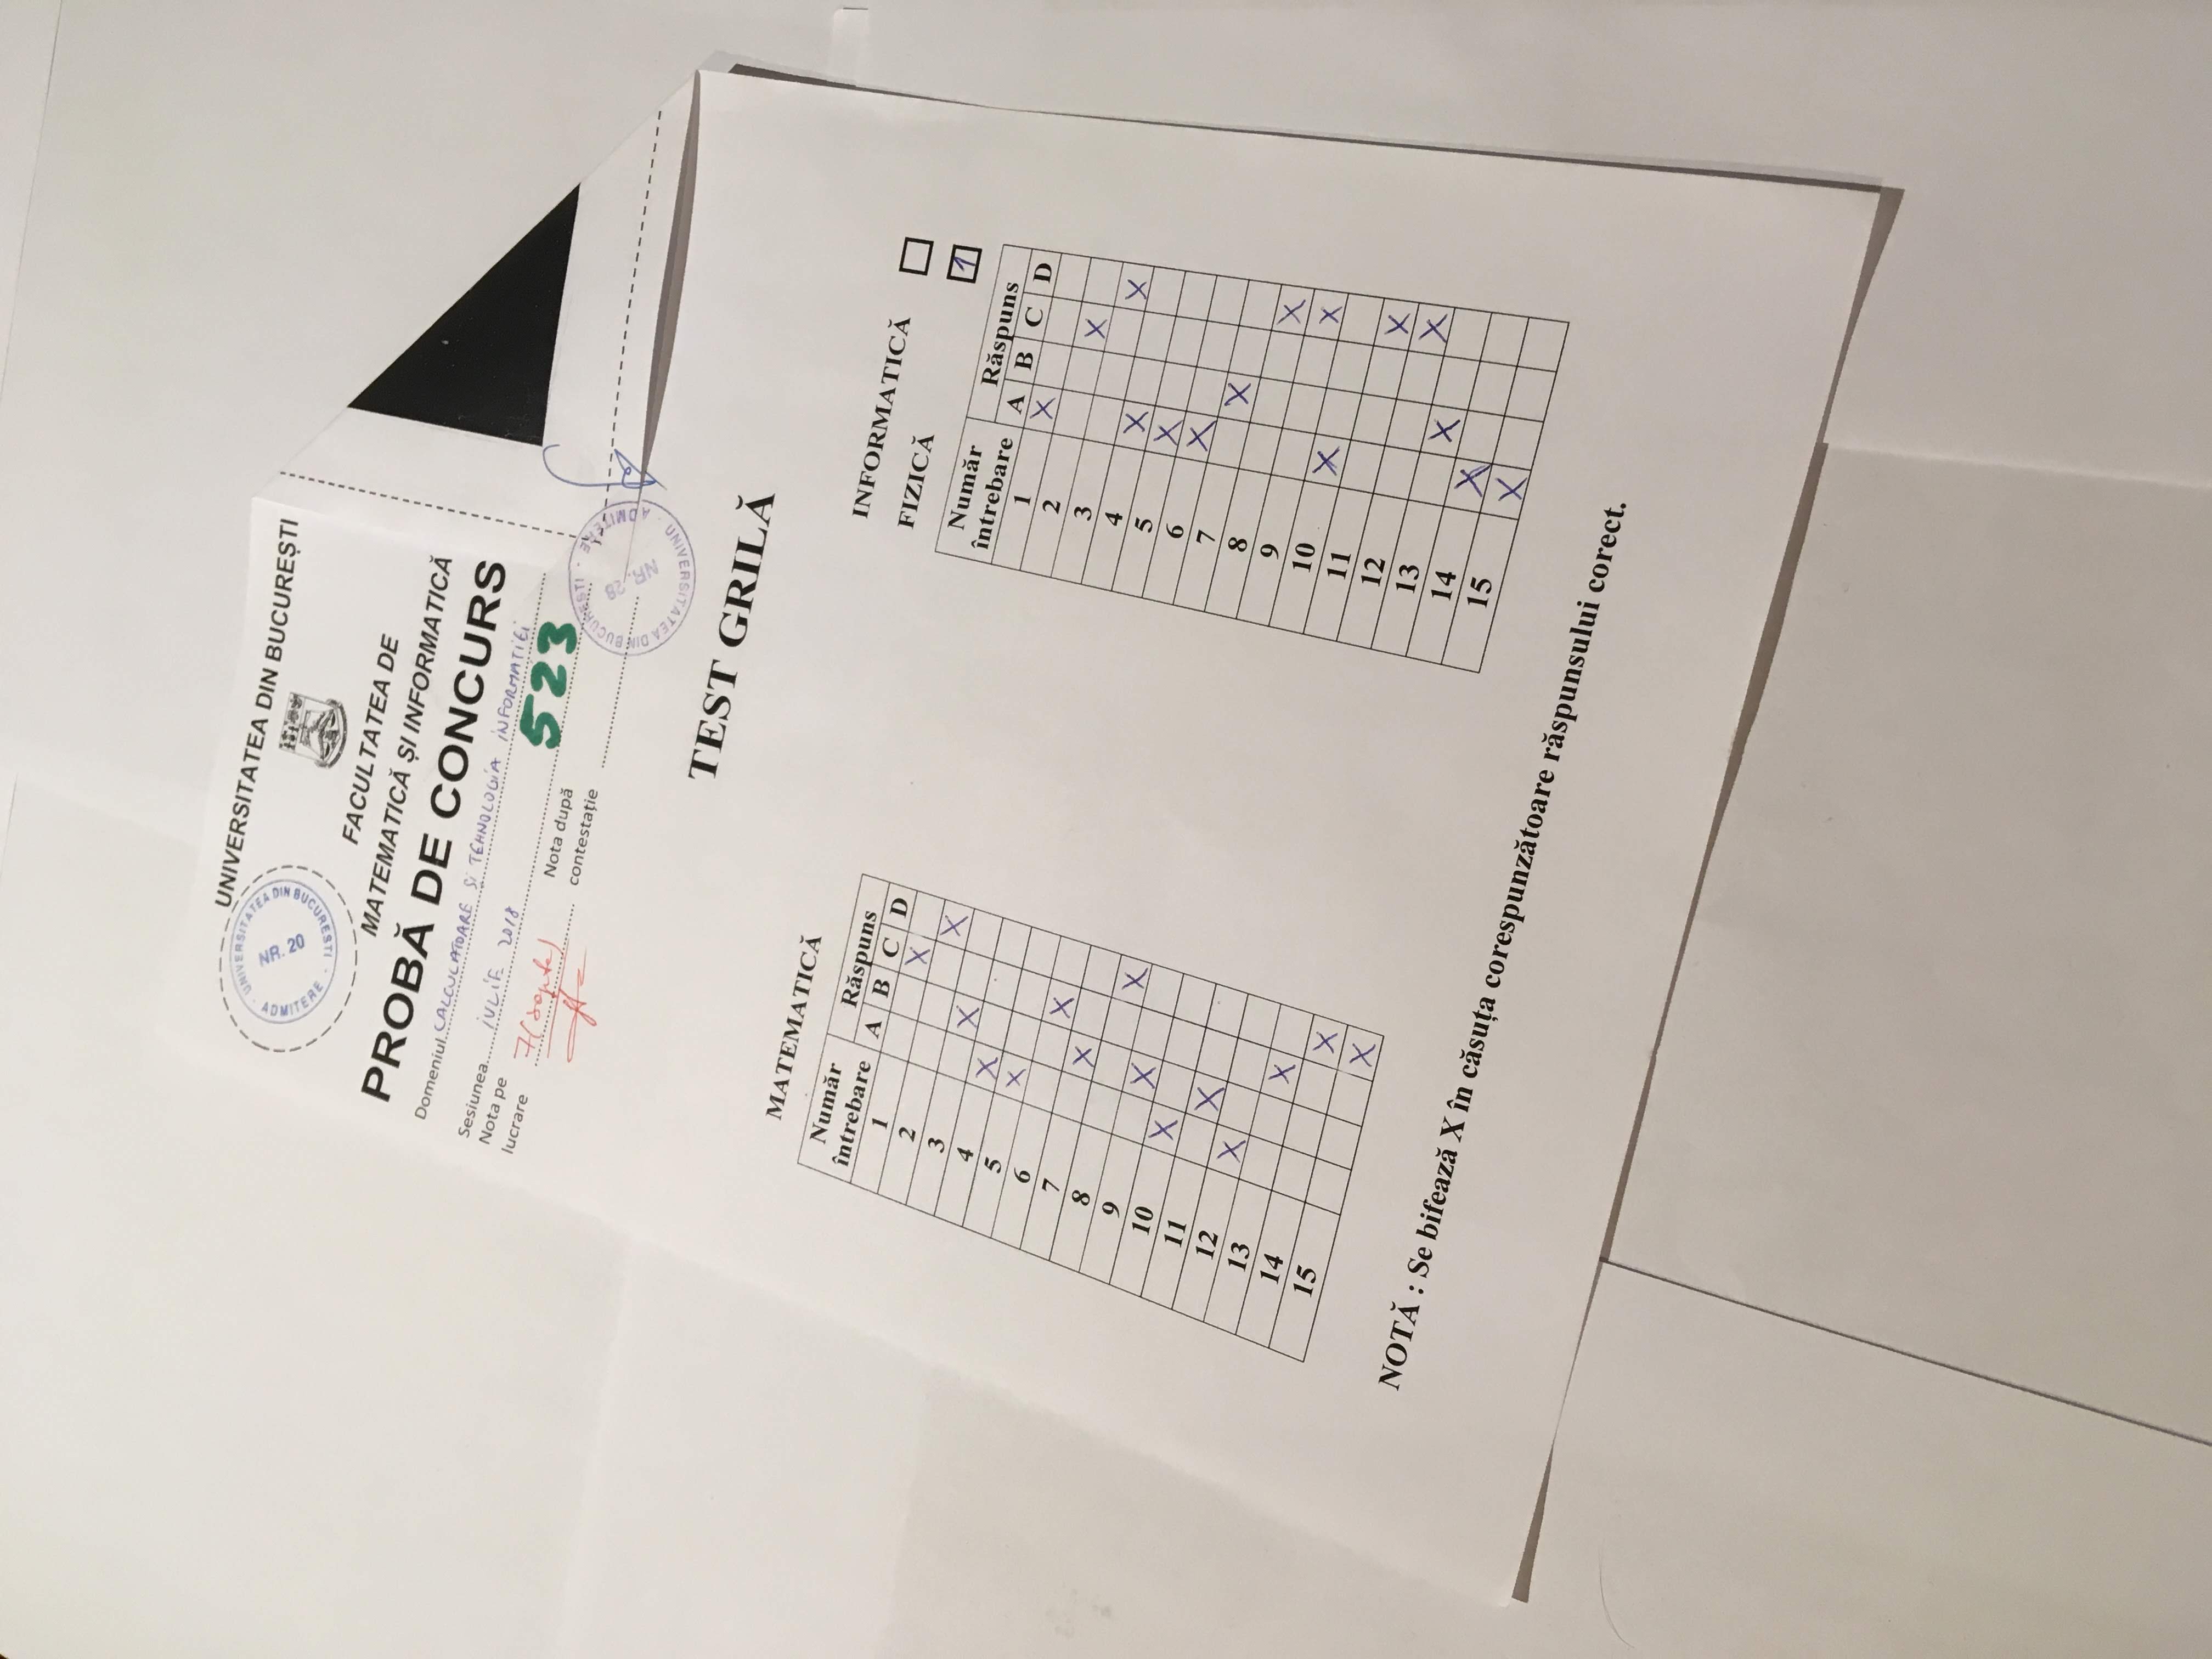 UNIVERSITATEA DIN BUCUREȘTI
UNIVERSITATEA DIN BUCURESTI · ADMITERE ·
NR. 20
FACULTATEA DE
MATEMATICĂ ȘI INFORMATICĂ
PROBĂ DE CONCURS
Domeniul CALCULATOARE ȘI TEHNOLOGIA INFORMAȚIEI
Sesiunea IULIE 2018
523
Nota pe
lucrare 7 (șapte)
Nota după
contestație
UNIVERSITATEA DIN BUCUREȘTI · ADMITERE ·
NR. 28
TEST GRILĂ
MATEMATICĂ
Număr
întrebare
Răspuns
A B C D
1 X
2 X
3 X
4 X
5 X
6 X
7 X
8 X
9 X
10 X
11 X
12 X
13 X
14 X
15 X
INFORMATICĂ
FIZICĂ 1
Număr
întrebare
Răspuns
A B C D
1 X
2 X
3 X
4 X
5 X
6 X
7 X
8 X
9 X
10 X
11 X
12 X
13 X
14 X
15 X
NOTĂ : Se bifează X în căsuța corespunzătoare răspunsului corect.